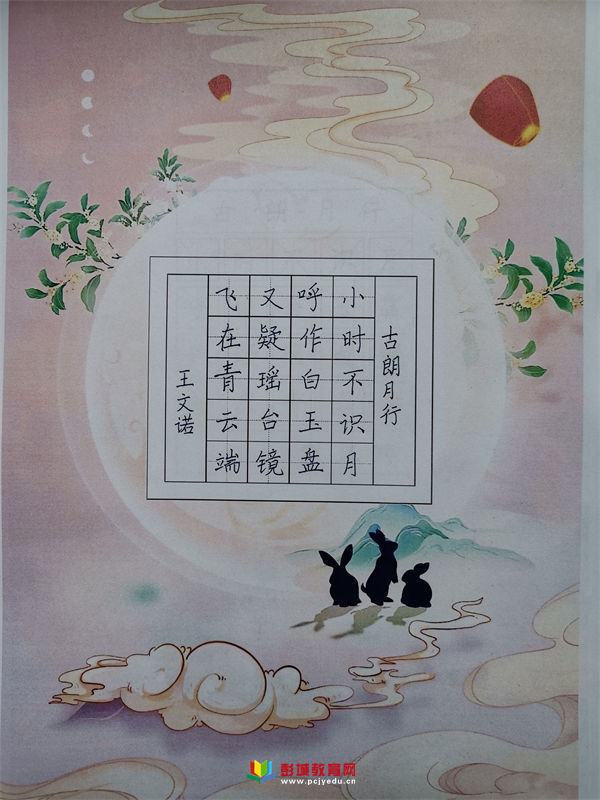 古朗月行
小时不识月
呼作白玉盘
又疑瑶台镜
飞在青云端
王文诺
彭城教育网
www.pcjyedu.cn